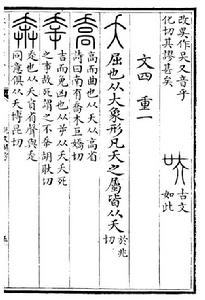 改吳作吴音乎
化切其謬甚矣
古文
如此
文四 重一
屈也从大象形凡夭之屬皆从夭於兆
切
高而曲也从夭从高省
詩曰南有喬木巨嬌切
吉而免凶也从屰从夭夭死
之事故死謂之不㚔胡耿切
走也从夭賁省聲與走
同意俱从夭博昆切